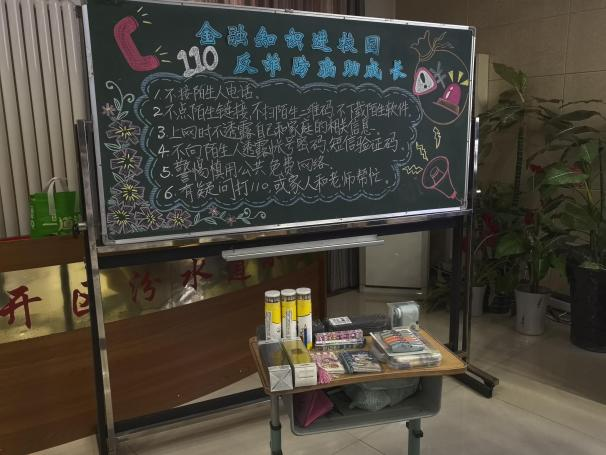 金融知识进校园
110 反诈防骗助成长
1.不接陌生人电话.
2.不点陌生链接,不扫陌生二维码,不下载陌生软件.
3.上网时不透露自己和家庭的相关信息.
4.不向陌生人透露账号密码,短信验证码.
5.警惕慎用公共免费网络.
6.有疑问打110,或家人和老师帮忙.
开区汾水道